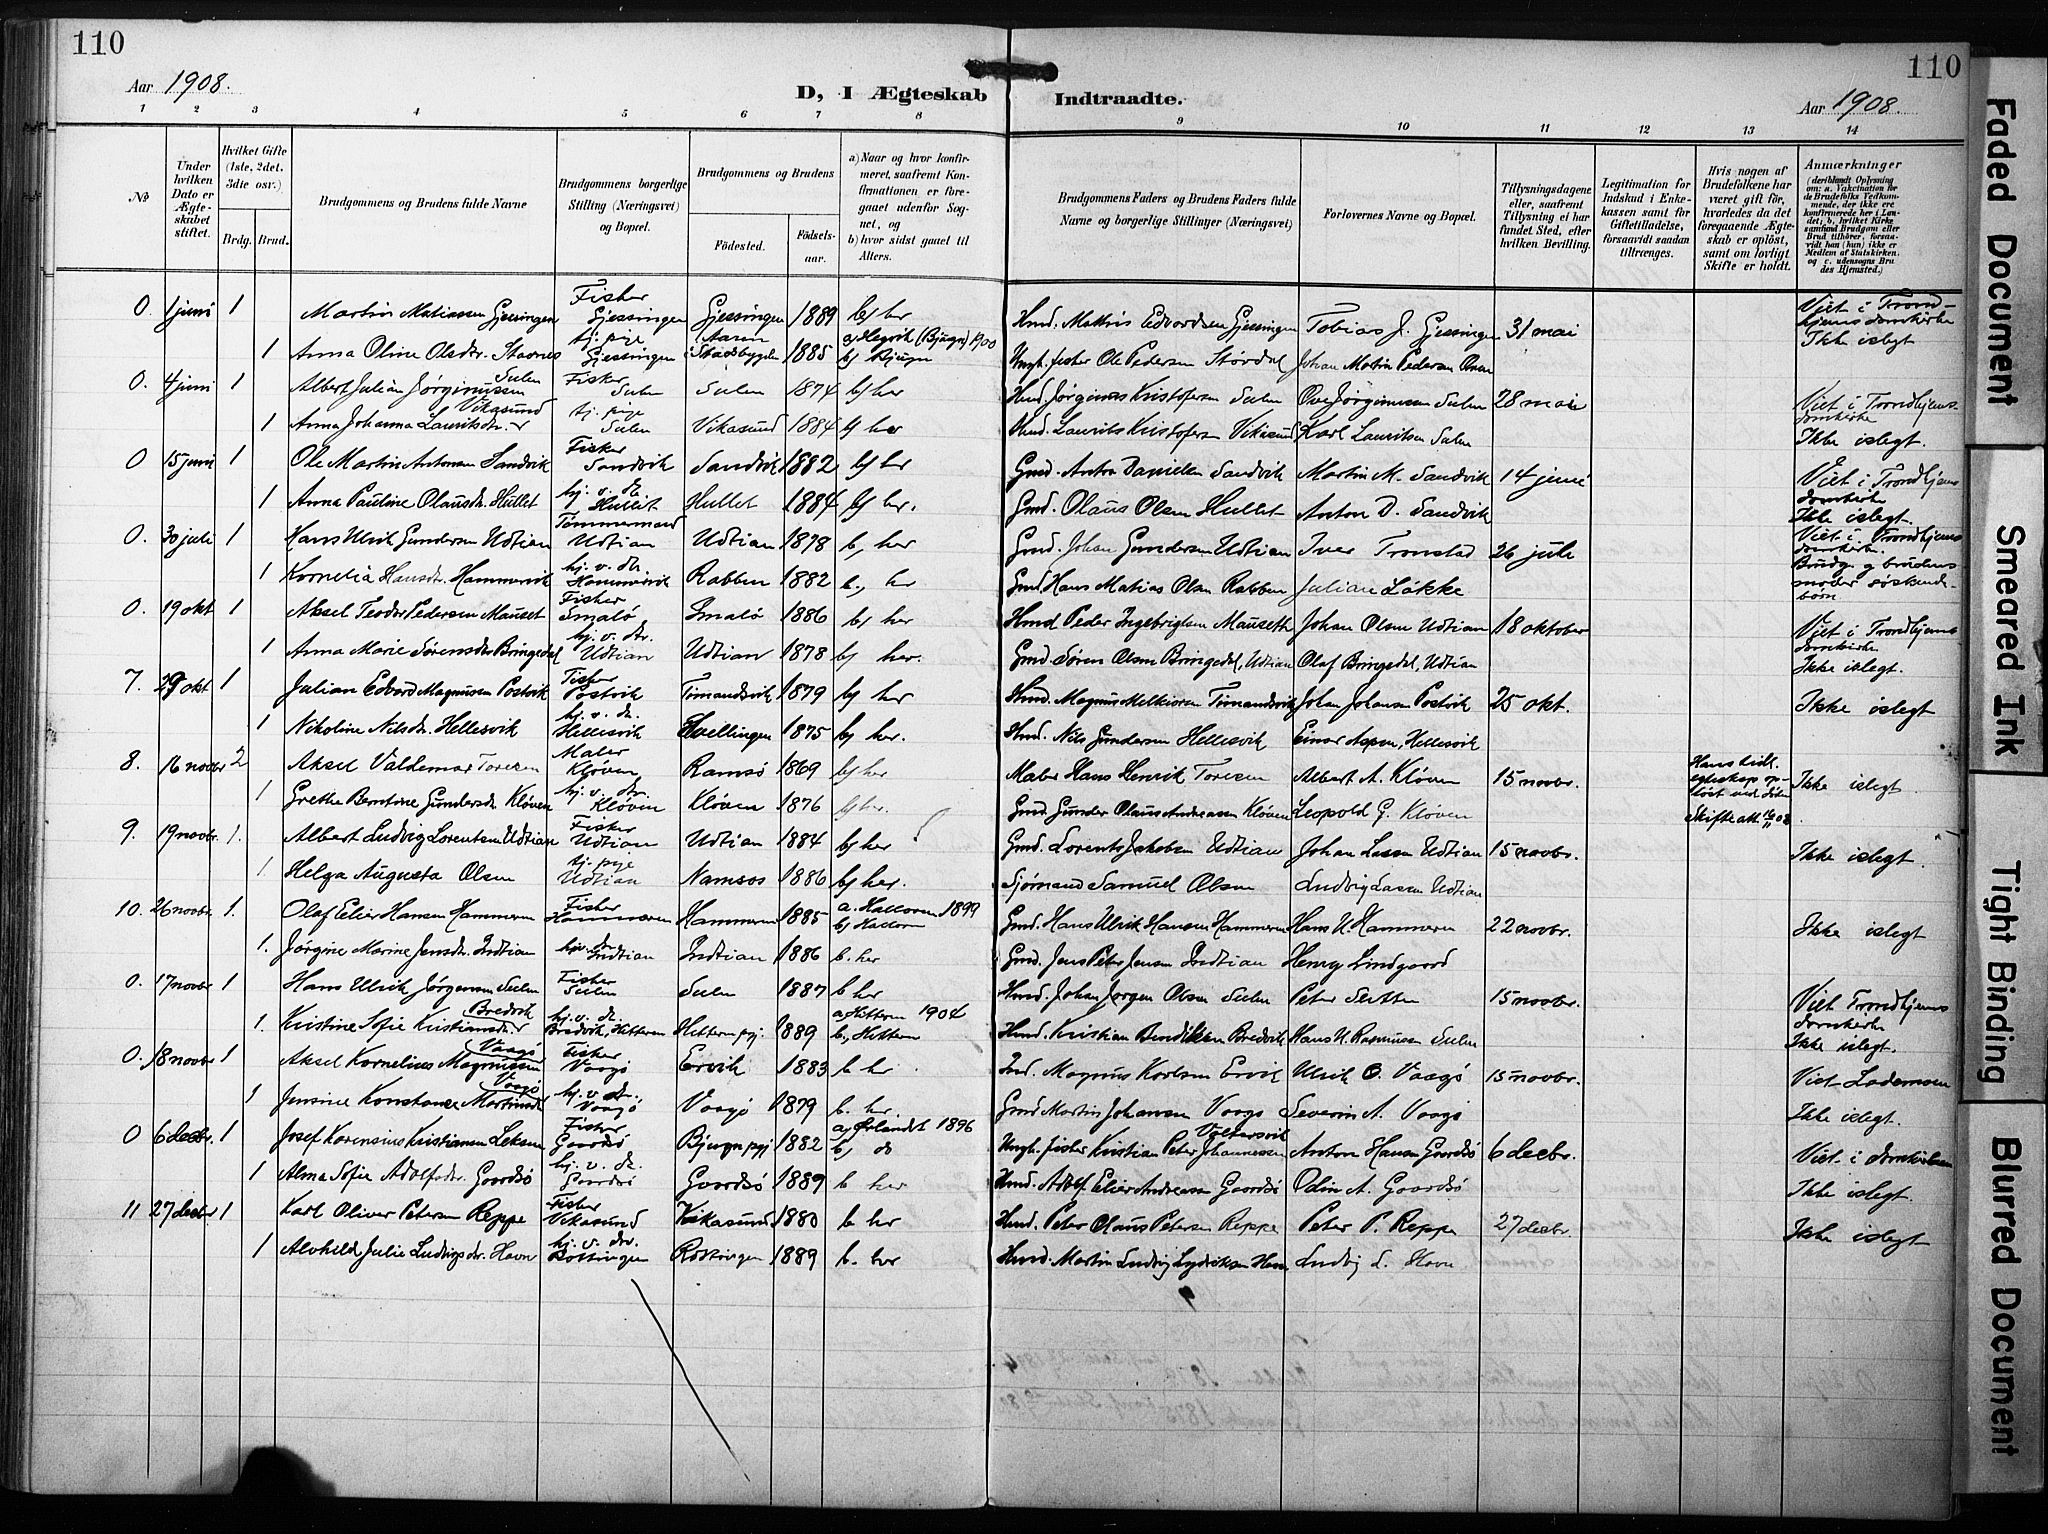 110
110
Aar 1908.
D, I Ægteskab Indtraadte.
Aar 1908.
1 2 3 4 5 6 7 8 9 10 11 12 13 14
No
Under hvilken Dato er Ægteskabet stiftet.
Hvilket Gifte (1ste, 2det, 3die osv.)
Brdg. Brud.
Brudgommens og Brudens fulde Navne
Brudgommens borgerlige Stilling (Næringsvei) og Bopæl.
Brudgommens og Brudens
Fødested.
Fødselsaar.
a) Naar og hvor konfirmeret, saafremt Konfirmationen er foregaaet udenfor Sognet, og
b) hvor sidst gaaet til Alters.
Brudgommens Faders og Brudens Faders fulde Navne og borgerlige Stillinger (Næringsvei)
Forlovernes Navne og Bopæl.
Tillysningsdagene eller, saafremt Tillysning ei har fundet Sted, efter hvilken Bevilling.
Legitimation for Indskud i Enkekassen samt for Giftetilladelse, forsaavidt saadan tiltrænges.
Hvis nogen af Brudefolkene har været gift før, hvorledes da det foregaaende Ægteskab er opløst, samt om lovligt Skifte er holdt.
Anmærkninger
(deriblandt Oplysning om: a. Vakcination for de Brudefolks Vedkommende, der ikke ere konfirmerede her i Landet; b. hvilket Kirkesamfund Brudgom eller Brud tilhører, forsaavidt han (hun) ikke er Medlem af Statskirken, og c. udensogns Brudes Hjemsted.)
0. 1 juni 1 Martin Matiassen Gjessingen Fisker Gjessingen Gjessingen 1889 b) her Hmd. Mathis Edvardsen Gjessingen Tobias J. Gjessingen 31 mai Viet i Trondhjems domkirke
1 Anna Oline Olsdr. Stavnes tj. pige Gjessingen Stadsbygden 1885 b) Bjugn Ungk. fisker Ole Pedersen Johan Martin Pedersen Ikke islegt
0. 4 juni 1 Albert Julian Jørginussen Sulen Fisker Sulen Sulen 1874 b) her Hmd. Jørginus Kristofersen Sulen Ove Jørginussen Sulen 28 mai Viet i Trondhjems domkirke
1 Anna Johanna Lauritsdr. Vikasund tj. pige Sulen Vikasund 1884 b) her Hmd. Laurits Kristofersen Vikasund Karl Lauritsen Sulen Ikke islegt.
0 15 juni 1 Ole Martin Antonsen Sandvik Fisker Sandvik Sandvik 1882 b) her Gmd. Anton Danielsen Sandvik Martin M. Sandvik 14 juni Viet i Trondhjems domkirke
1 Anna Pauline Olausdr. Hullet hj. v. dr. Hullet Hullet 1884 b) her. Gmd. Olaus Olsen Hullet Anton D. Sandvik Ikke islegt.
0. 30 juli 1 Hans Ulrik Gundersen Udtian Tømmermand Udtian Udtian 1878 b, her Gmd. Johan Gundersen Udtian Iver Tronstad 26 juli Viet i Trondhjems domkirke.
1 Kornelia Hansdr. Hammervik hj. v. dr. Hammervik Rabben 1882 b., her Gmd. Hans Matias Olsen Rabben Julian Løkke Brudg. og brudens moder søskendebørn
0. 19 okt 1 Aksel Teodor Pedersen Mauset Fisker Smalø Smalø 1886 b) her Hmd Peder Ingebrigtsen Mauseth Johan Olsen Udtian 18 oktober Viet i Trondhjems domkirke
1 Anna Marie Sørensdr Bringedal hj. v. dr. Udtian Udtian 1878 b) her. Gmd. Søren Olsen Bringedal, Udtian Olaf Bringedal, Udtian Ikke islegt.
7. 29 okt 1 Julian Edvard Magnussen Postvik Fisker Postvik Timandsvik 1879 b) her Hmd. Magnus Melkiorsen Timandsvik Johan Johansen Postvik 25 okt. Ikke islegt
1 Nikoline Nilsdr. Hellesvik hj. v. dr. Hellesvik Hvellingen 1875 b) her. Hmd. Nils Gundersen Hellesvik Einar Aspen, Hellesvik
8. 16 novbr 2 Aksel Valdemar Toresen Maler Kløven Ramsø 1869 b) her Maler Hans Henrik Toresen Albert A. Kløven 15 novbr. Hans tidl. egteskap opløst ved døden Ikke islegt
1 Grethe Berntine Gundersdr. Kløven hj. v. dr. Kløven Kløven 1876 b) her. Gmd. Gunder Olaus Andreassen Kløven Leopold G. Kløven Skifteatt. 16/11 08
9. 19 novbr. 1. Albert Ludvig Lorentsen Udtian Fisker Udtian Udtian 1884 b) her Gmd. Lorents Jakobsen Udtian Johan Lassen Udtian 15 novbr. Ikke islegt.
1. Helga Augusta Olsen tj. pige Udtian Namsos 1886 b) her. Sjømand Samuel Olsen Ludvig Lassen Udtian
10. 26 novbr. 1. Olaf Elier Hansen Hammeren Fisker Hammeren Hammeren 1885 1899 Gmd. Hans Ulrik Hansen Hammeren Hans U. Hammeren 22 novbr. Ikke islegt
1. Jørgine Marine Jensdr. Indtian hj. v. dr. Indtian Indtian 1886 b. her Gmd. Jens Peter Jensen Indtian Henry Lindgaard
0. 17 novbr 1 Hans Ulrik Jørgensen Sulen Fisker Sulen Sulen 1887 b her Hmd. Johan Jørgen Olsen Sulen Peter Slutten 15 novbr. Viet Trondhjems domkirke
1. Kristine Sofie Kristiansdr. Bredvik hj. v. dr. Bredvik, Hitteren Hitteren pgj. 1889 a, Hitteren 1904 b., Hitteren Hmd. Kristian Bendiksen Bredvik Hans U. Rasmussen Sulen Ikke islegt.
0. 18 novbr 1 Aksel Kornelius Magnussen Vaagø Fisker Vaagø Ervik 1883 b her Ind. Magnus Karlsen Ervik Ulrik O. Vaagø 15 novbr. Viet Lademoen
1 Jensine Konstanse Martinsdr. Vaagø hj. v. dr. Vaagø Vaagø 1879 b. her. Gmd Martin Johansen Vaagø Severin A. Vaagø Ikke islegt.
0 6 decbr. 1 Josef Korensius Kristiansen Leksen Fisker Gaardsø Bjugn pgj 1882 a) Ørlandet 1896 b) do Ungk. fisker Kristian Peter Johannessen Valtersvik Anton Hansen Gaardsø 6 decbr. Viet i domkirken
1 Alma Sofie Adolfsdr. Gaardsø hj. v. dr. Gaardsø Gaardsø 1889 b her Hmd. Adolf Elier Andreassen Gaardsø Odin A. Gaardsø Ikke islegt.
11 27 decbr 1 Karl Oliver Petersen Reppe Fisker Vikasund Vikasund 1880 b. her Hmd. Peter Olaus Petersen Reppe Peter P. Reppe 27 decbr. Ikke islegt
1 Alvhild Julie Ludvigsdr. Havn hj. v. dr. Bottingen 1889 b. her Hmd. Martin Ludvig Lydriksen Havn Ludvig L. Havn
Faded Document
Smeared Ink
Tight Binding
Blurred Document